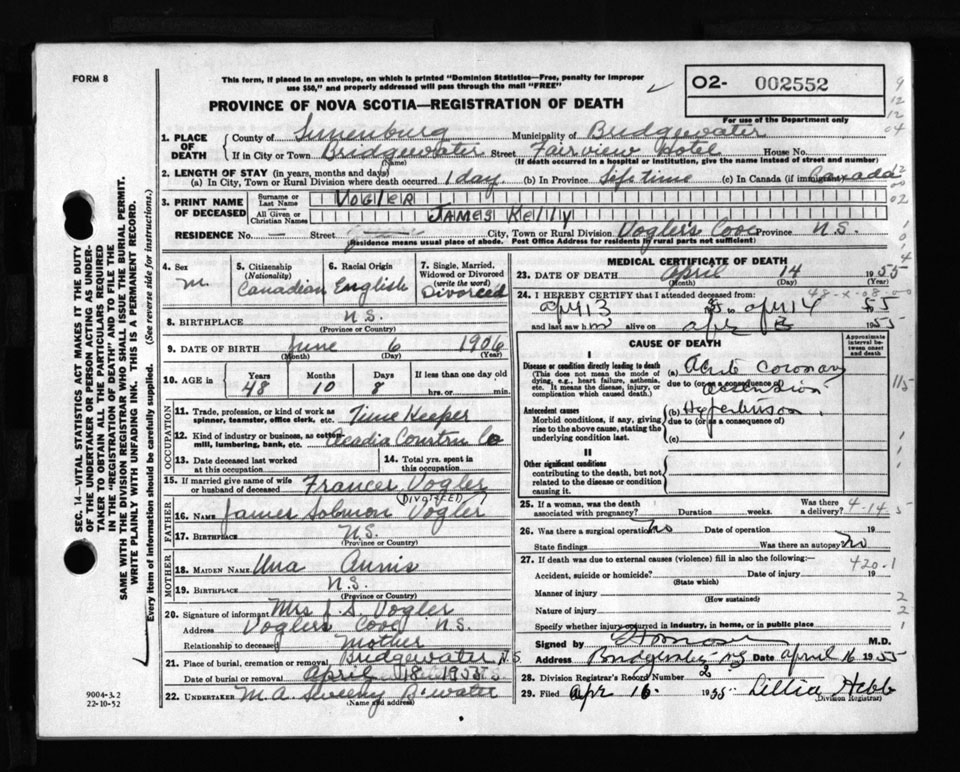 FORM 8
This form, if placed in an envelope, on which is printed "Dominion Statistics—Free, penalty for improper
use $50," and properly addressed will pass through the mail "FREE"
O2- 002552
For use of the Department only
PROVINCE OF NOVA SCOTIA—REGISTRATION OF DEATH
1. PLACE OF DEATH
County of Lunenburg Municipality of Bridgewater
If in City or Town Bridgewater Street Fairview Hotel House No.
(Name) (If death occurred in a hospital or institution, give the name instead of street and number)
2. LENGTH OF STAY (in years, months and days)
(a) In City, Town or Rural Division where death occurred 1 day (b) In Province Life time (c) In Canada (if immigrant) Canada
3. PRINT NAME OF DECEASED
Surname or Last Name VOGLER
All Given or Christian Names JAMES KELLY
RESIDENCE No. — Street City, Town or Rural Division Voglers Cove Province N.S.
(Residence means usual place of abode. Post Office Address for residents in rural parts not sufficient)
4. Sex M.
5. Citizenship (Nationality) Canadian
6. Racial Origin English
7. Single, Married, Widowed or Divorced (write the word) Divorced
8. BIRTHPLACE N.S.
(Province or Country)
9. DATE OF BIRTH June 6 1906
(Month) (Day) (Year)
10. AGE in Years 48 Months 10 Days 8 If less than one day old
hrs. or min.
OCCUPATION
11. Trade, profession, or kind of work as spinner, teamster, office clerk, etc. Time Keeper
12. Kind of industry or business, as cotton mill, lumbering, bank, etc. Acadia Constru Co
13. Date deceased last worked at this occupation
14. Total yrs. spent in this occupation
15. If married give name of wife or husband of deceased Frances Vogler
(DIVORCED)
FATHER
16. Name James Solomon Vogler
17. Birthplace N.S.
(Province or Country)
MOTHER
18. MAIDEN NAME Una Annis
19. BIRTHPLACE N.S.
(Province or Country)
20. Signature of informant Mrs J. S. Vogler
Address Voglers Cove N.S.
Relationship to deceased Mother
21. Place of burial, cremation or removal Bridgewater N.S.
Date of burial or removal April 18 1955
22. UNDERTAKER M.A. Sweeny B.water
(Name and address)
MEDICAL CERTIFICATE OF DEATH
23. DATE OF DEATH April 14 1955
(Month) (Day) (Year)
24. I HEREBY CERTIFY that I attended deceased from:
48-x-08-00
apr 13 55 to apr 14 1955
and last saw him alive on apr 13 1955
CAUSE OF DEATH
Approximate interval between onset and death
I
Disease or condition directly leading to death
(This does not mean the mode of dying, e.g., heart failure, asthenia, etc. It means the disease, injury, or complication which caused death.)
(a) Acute coronary
due to (or as a consequence of)
Antecedent causes
Morbid conditions, if any, giving rise to the above cause, stating the underlying condition last.
(b) Hypertension
due to (or as a consequence of)
(c)
II
Other significant conditions
contributing to the death, but not related to the disease or condition causing it.
25. If a woman, was the death associated with pregnancy? Duration weeks. Was there a delivery?
4-14-5
26. Was there a surgical operation? No Date of operation 19
State findings Was there an autopsy? No
27. If death was due to external causes (violence) fill in also the following:
420-1
Accident, suicide or homicide? Date of injury 19
(State which)
Manner of injury
(How sustained)
Nature of injury
Specify whether injury occurred in industry, in home, or in public place
Signed by M.D.
Address Bridgewater NS Date april 16 1955
28. Division Registrar's Record Number 2
29. Filed Apr 16 1955 Lillia Hebb
(Division Registrar)
SEC. 14—VITAL STATISTICS ACT MAKES IT THE DUTY
OF THE UNDERTAKER OR PERSON ACTING AS UNDER-
TAKER TO OBTAIN ALL THE PARTICULARS REQUIRED
IN THE "REGISTRATION OF DEATH" AND TO FILE THE
SAME WITH THE DIVISION REGISTRAR WHO SHALL ISSUE THE BURIAL PERMIT.
WRITE PLAINLY WITH UNFADING INK. THIS IS A PERMANENT RECORD.
Every item of information should be carefully supplied. (See reverse side for instructions.)
9004-3.2
22-10-52